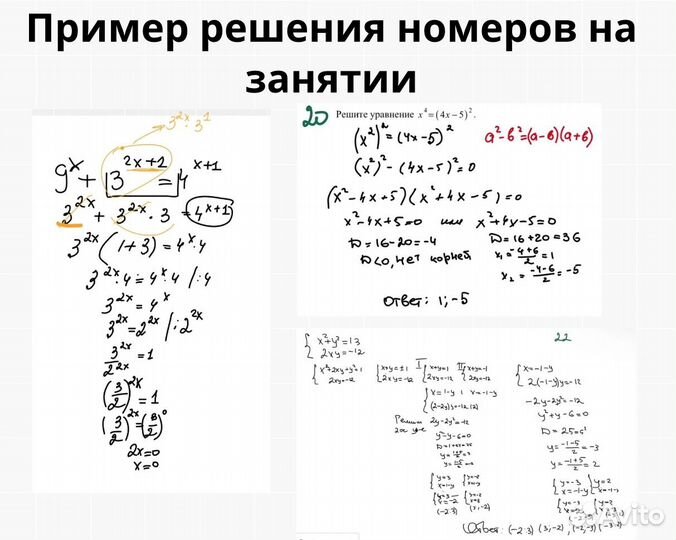 Пример решения номеров на
занятии
3^2x · 3^1
9^x + 3^2x+1 = 4^x+1
3^2x + 3^2x · 3 = 4^x+1
3^2x (1+3) = 4^x · 4
3^2x · 4 = 4^x · 4 / :4
3^2x = 4^x
3^2x = 2^2x / : 2^2x
3^2x / 2^2x = 1
(3/2)^2x = 1
(3/2)^2x = (3/2)^0
2x=0
x=0
20 Решите уравнение x^4 = (4x−5)^2.
(x^2)^2 = (4x−5)^2
a^2−b^2=(a−b)(a+b)
(x^2)^2 − (4x−5)^2 = 0
(x^2−4x+5)(x^2+4x−5)=0
x^2−4x+5=0 или x^2+4x−5=0
D=16−20=−4 D=16+20=36
D<0, нет корней x1 = −4+6/2 = 1
x2 = −4−6/2 = −5
Ответ: 1; −5
22
x^2+y^2=13
2xy=−12
x^2+2xy+y^2=1
2xy=−12
I x+y=1
2xy=−12
II x+y=−1
2xy=−12
x=1−y
Решим
2y−2y^2=−12
y^2−y−6=0
x=−1−y
2(−1−y)y=−12
−2y−2y^2=−12
y^2+y−6=0
D=25=5^2
y = −1−5/2 = −3
y = −1+5/2 = 2
y=3
x=1−y
y=−3
x=−1−y
y=2
x=−1−y
y=3
x=−2
(−2;3)
(3;−2)
Ответ: (−2;3) (3;−2), (2;−3) (−3;2)
Avito